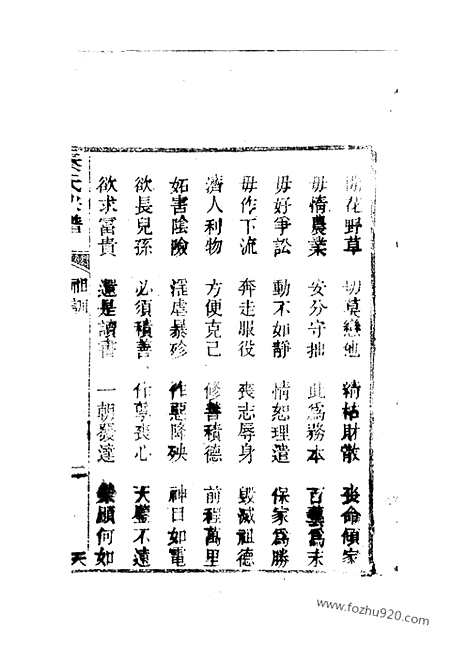 閒花野草 切莫戀他 精枯財散 喪命傾家
毋惰農業 安分守拙 此為務本 百藝為末
毋好爭訟 動不如靜 情恕理遣 保家為勝
毋作下流 奔走服役 喪志辱身 毀滅祖德
濟人利物 方便克己 修善積德 前程萬里
妬害陰險 淫虐暴殄 作惡降殃 神目如電
欲長兒孫 必須積善 作孽喪心 天鑒不遠
欲求富貴 還是讀書 一朝發達 榮顯何如
氏宗譜 祖訓 二
www.fozhu920.com